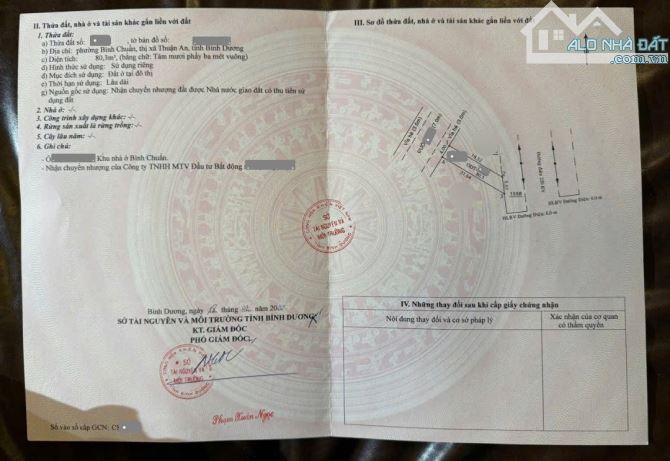 II. Thửa đất, nhà ở và tài sản khác gắn liền với đất
1. Thửa đất:
a) Thửa đất số: , tờ bản đồ số:
b) Địa chỉ: phường Bình Chuẩn, thị xã Thuận An, tỉnh Bình Dương
c) Diện tích: 80,3m², (bằng chữ: Tám mươi phẩy ba mét vuông)
d) Hình thức sử dụng: Sử dụng riêng
đ) Mục đích sử dụng: Đất ở tại đô thị
e) Thời hạn sử dụng: Lâu dài
g) Nguồn gốc sử dụng: Nhận chuyển nhượng đất được Nhà nước giao đất có thu tiền sử
dụng đất
2. Nhà ở: -/-
3. Công trình xây dựng khác: -/-
4. Rừng sản xuất là rừng trồng: -/-
5. Cây lâu năm: -/-
6. Ghi chú:
Khu nhà ở Bình Chuẩn.
- Nhận chuyển nhượng của Công ty TNHH MTV Đầu tư Bất động
Bình Dương, ngày tháng năm
SỞ TÀI NGUYÊN VÀ MÔI TRƯỜNG TỈNH BÌNH DƯƠNG
KT. GIÁM ĐỐC
PHÓ GIÁM ĐỐC
SỞ
TÀI NGUYÊN VÀ
MÔI TRƯỜNG
Phạm Xuân Ngọc
Số vào sổ cấp GCN: CS
SỞ
TÀI NGUYÊN VÀ
MÔI TRƯỜNG
III. Sơ đồ thửa đất, nhà ở và tài sản khác gắn liền với đất
ALO NHÀ ĐẤT
.com.vn
Vỉa hè (3.0m)
Vỉa hè (3.0m)
HLBV Đường Điện: 6.0 m
HLBV Đường Điện: 6.0 m
IV. Những thay đổi sau khi cấp giấy chứng nhận
Nội dung thay đổi và cơ sở pháp lý
Xác nhận của cơ quan
có thẩm quyền